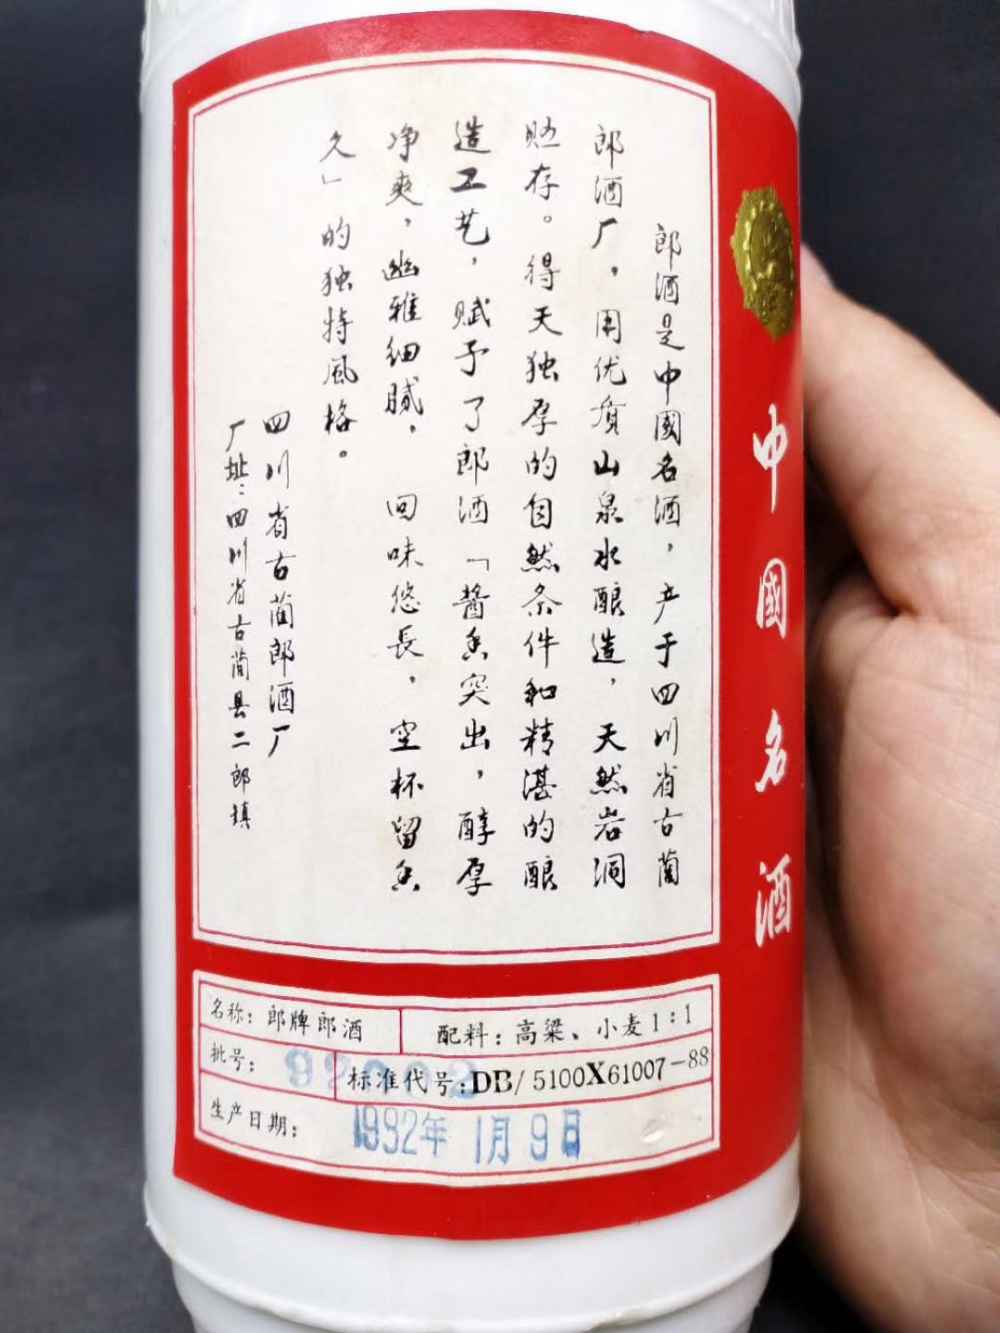 郎酒是中國名酒，产于四川省古蔺
郎酒厂，用优质山泉水酿造，天然岩洞
贮存。得天独厚的自然条件和精湛的酿
造工艺，赋予了郎酒「酱香突出，醇厚
净爽，幽雅细腻，回味悠長，空杯留香
久」的独特風格。
四川省古蔺郎酒厂
厂址：四川省古蔺县二郎镇
中國名酒
名称：郎牌郎酒
配料：高粱、小麦1：1
批号：
标准代号：DB/5100X61007-88
生产日期：1992年1月9日